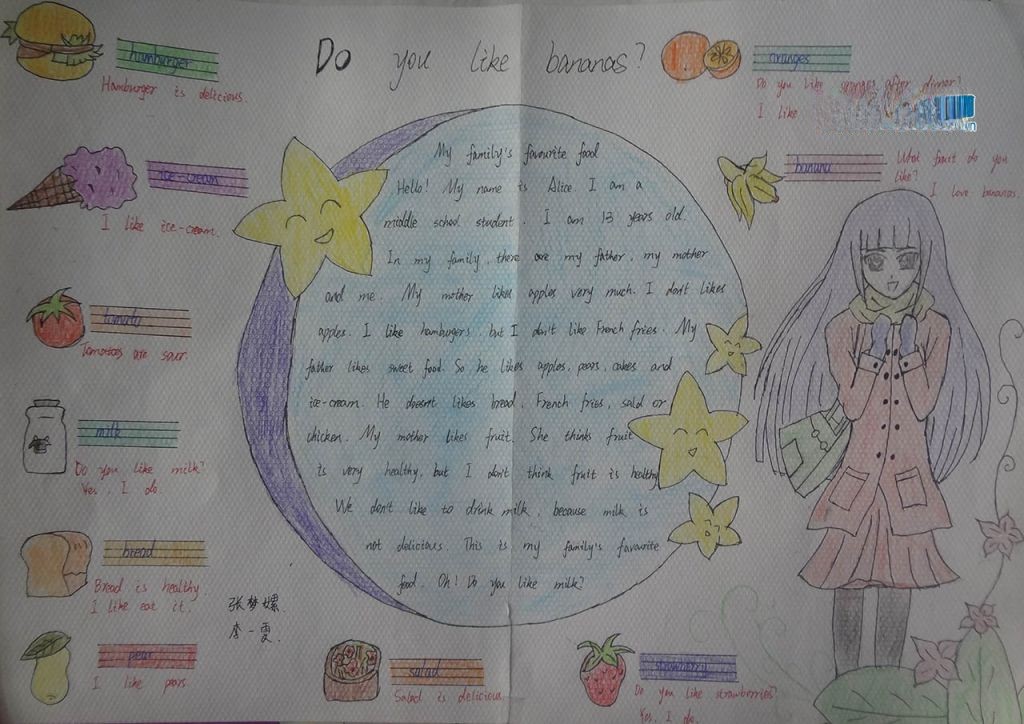 Do you like bananas?
hamburger
Hamburger is delicious.
ice-cream
I like ice-cream.
tomato
Tomatoes are sour.
milk
Do you like milk?
Yes, I do.
bread
Bread is healthy
I like eat it.
pear
I like pears.
张梦嫘
李一雯
My family's favourite food
Hello! My name is Alice. I am a
middle school student. I am 13 years old.
In my family, there are my father, my mother
and me. My mother likes apples very much. I don't likes
apples. I like hamburgers, but I don't like French fries. My
father likes sweet food. So he likes apples, pears, cakes and
ice-cream. He doesn't likes bread, French fries, salad or
chicken. My mother likes fruit. She thinks fruit
is very healthy, but I don't think fruit is healthy
We don't like to drink milk, because milk is
not delicious. This is my family's favourite
food. Oh! Do you like milk?
salad
Salad is delicious
strawberry
Do you like strawberries?
Yes, I do.
oranges
Do you like oranges after dinner?
I like
banana
What fruit do you
like?
I love bananas.